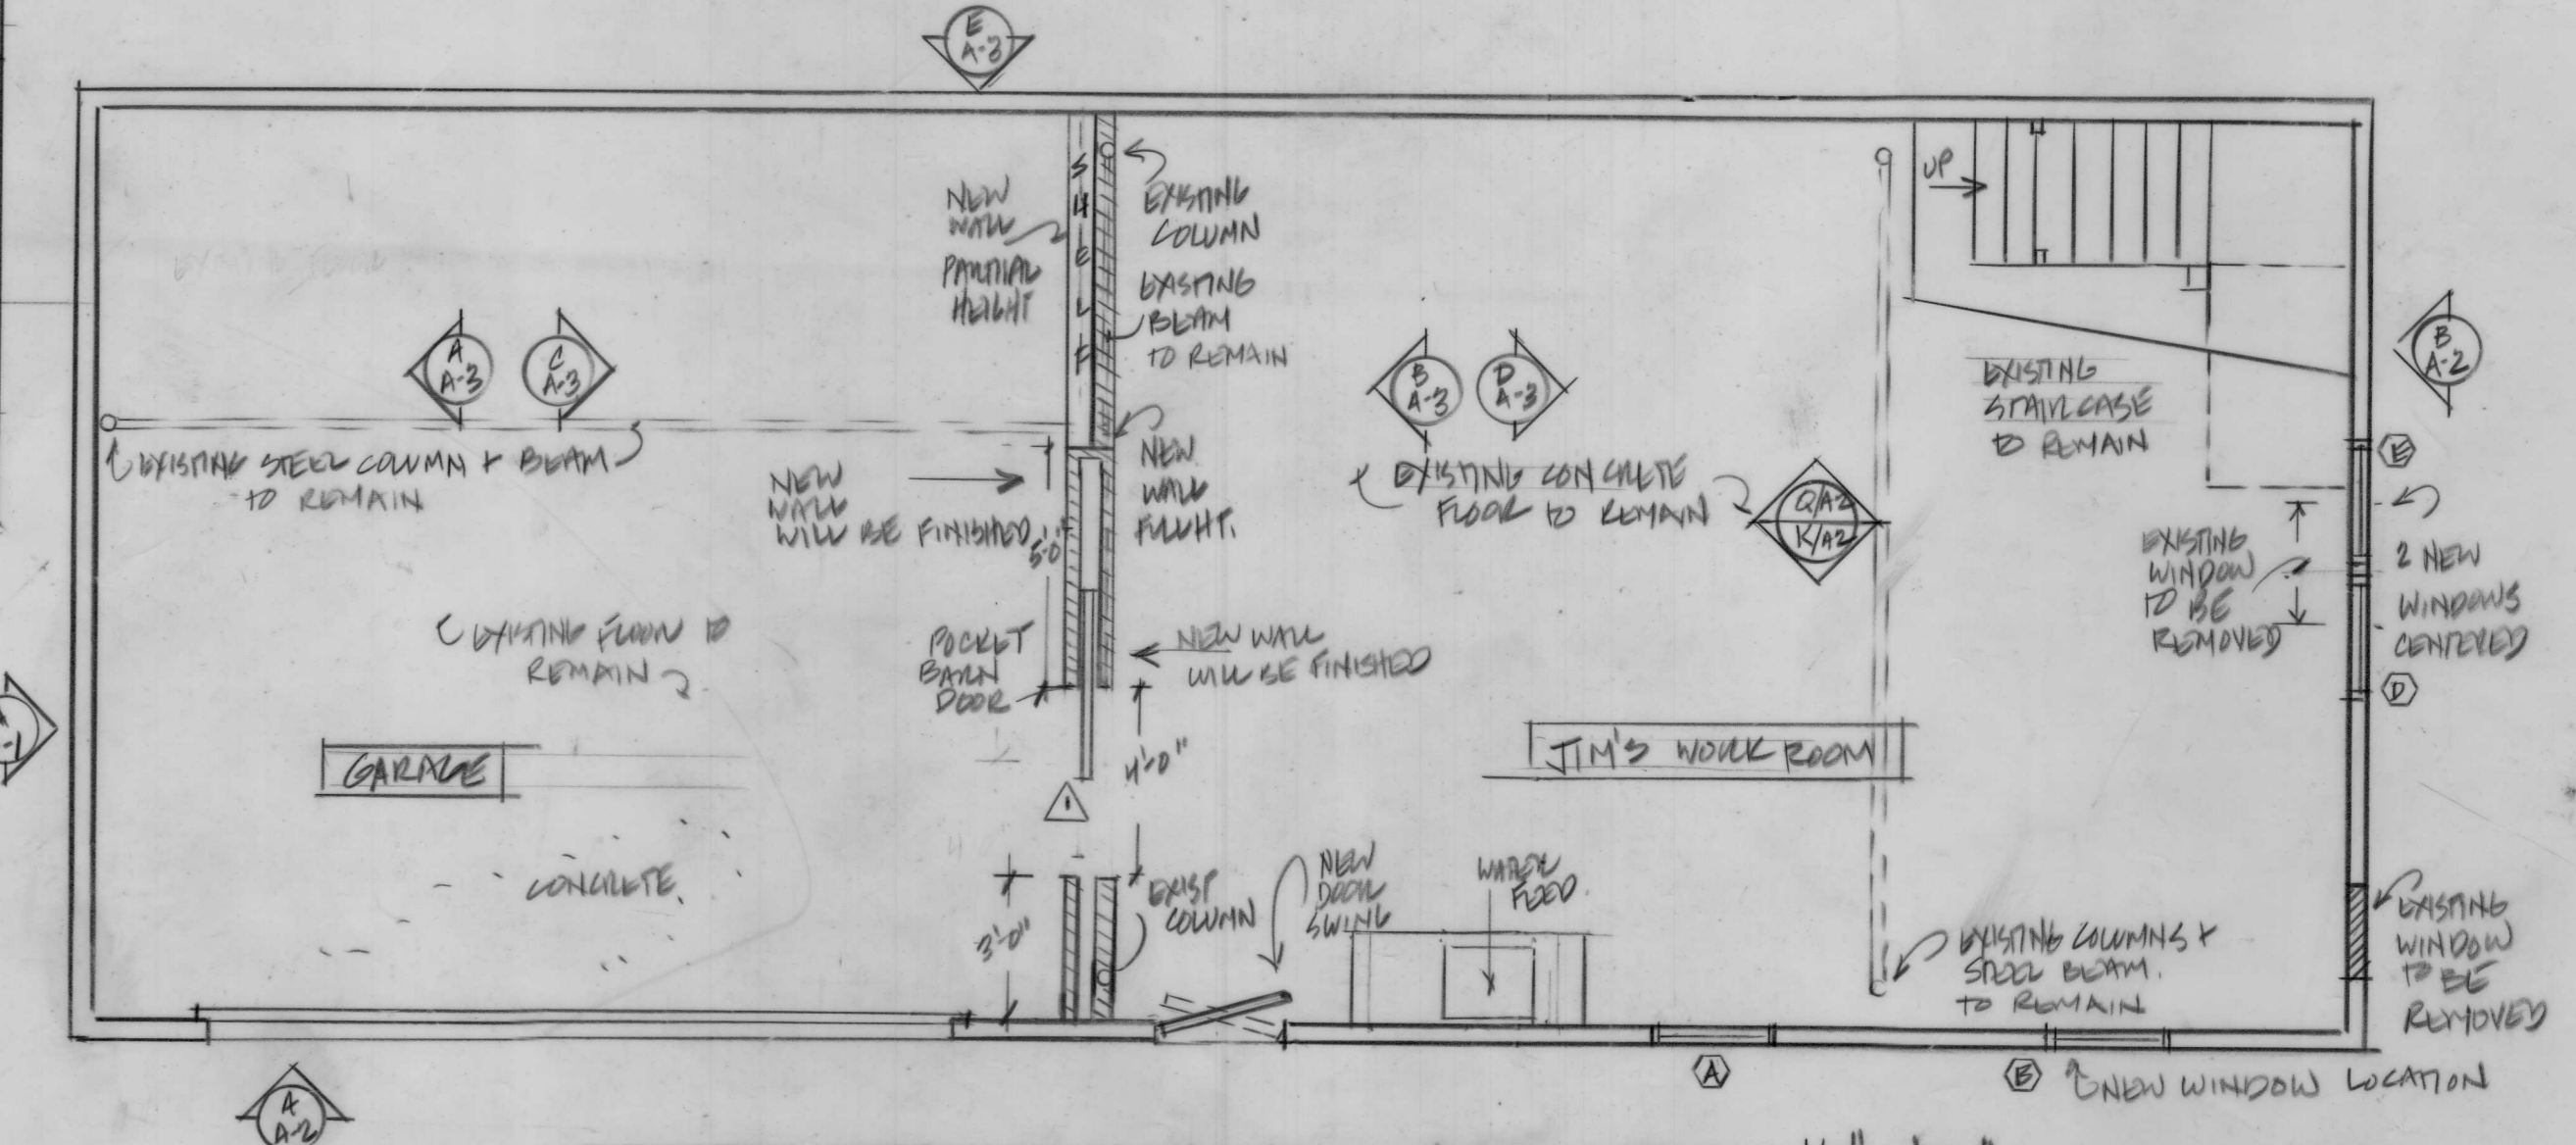 E
A-3
SHELF
NEW
WALL
PARTIAL
HEIGHT
EXISTING
COLUMN
EXISTING
BEAM
TO REMAIN
UP
A
A-3
C
A-3
B
A-3
D
A-3
B
A-2
EXISTING
STAIRCASE
TO REMAIN
EXISTING STEEL COLUMN + BEAM
TO REMAIN
NEW
WALL
WILL BE FINISHED
5'-0"
NEW
WALL
FULL HT.
EXISTING CONCRETE
FLOOR TO REMAIN
Q/A2
K/A2
E
EXISTING
WINDOW
TO BE
REMOVED
2 NEW
WINDOWS
CENTERED
D
EXISTING FLOOR TO
REMAIN
POCKET
BARN
DOOR
NEW WALL
WILL BE FINISHED
4'-0"
GARAGE
JIM'S WORK ROOM
1
CONCRETE.
3'-0"
EXIST
COLUMN
NEW
DOOR
SWING
WATER
FEED.
EXISTING COLUMNS +
STEEL BEAM.
TO REMAIN
EXISTING
WINDOW
TO BE
REMOVED
A
B
NEW WINDOW LOCATION
A
A-2